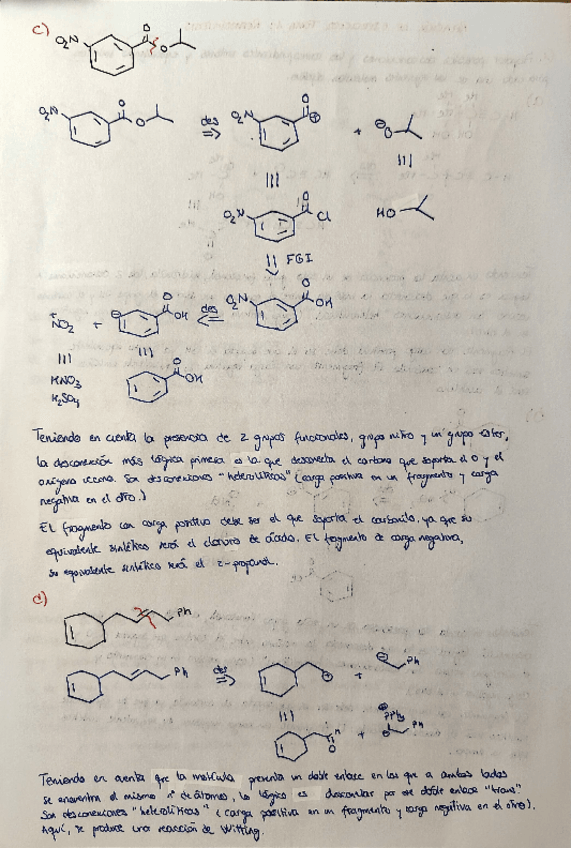 c)
O₂N O O
O₂N O O des ⇒ O₂N O ⊕ + ⊖ O
||| |||
O₂N O Cl HO
FGI
⁺NO₂ + ⊖ O OH des O₂N O OH
||| |||
HNO₃ O OH
H₂SO₄
Teniendo en cuenta la presencia de 2 grupos funcionales, grupo nitro y un grupo ester,
la desconexión más lógica primera es la que desconecta el carbono que soporta el O y el
oxígeno vecino. Son desconexiones "heterolíticas" (carga positiva en un fragmento y carga
negativa en el otro.)
El fragmento con carga positiva debe ser el que soporta el carbonilo, ya que su
equivalente sintético será el cloruro de ácido. El fragmento de carga negativa,
su equivalente sintético será el 2-propanol.
d)
Ph
Ph des ⇒ ⊕ + ⊖ Ph
||| 
H O + ⊕ PPh₃ ⊖ Ph
Teniendo en cuenta que la molécula presenta un doble enlace en los que a ambos lados
se encuentra el mismo nº de átomos, lo lógico es desconectar por ese doble enlace "trans"
Son desconexiones "heterolíticas" (carga positiva en un fragmento y carga negativa en el otro).
Aquí, se produce una reacción de Witting.